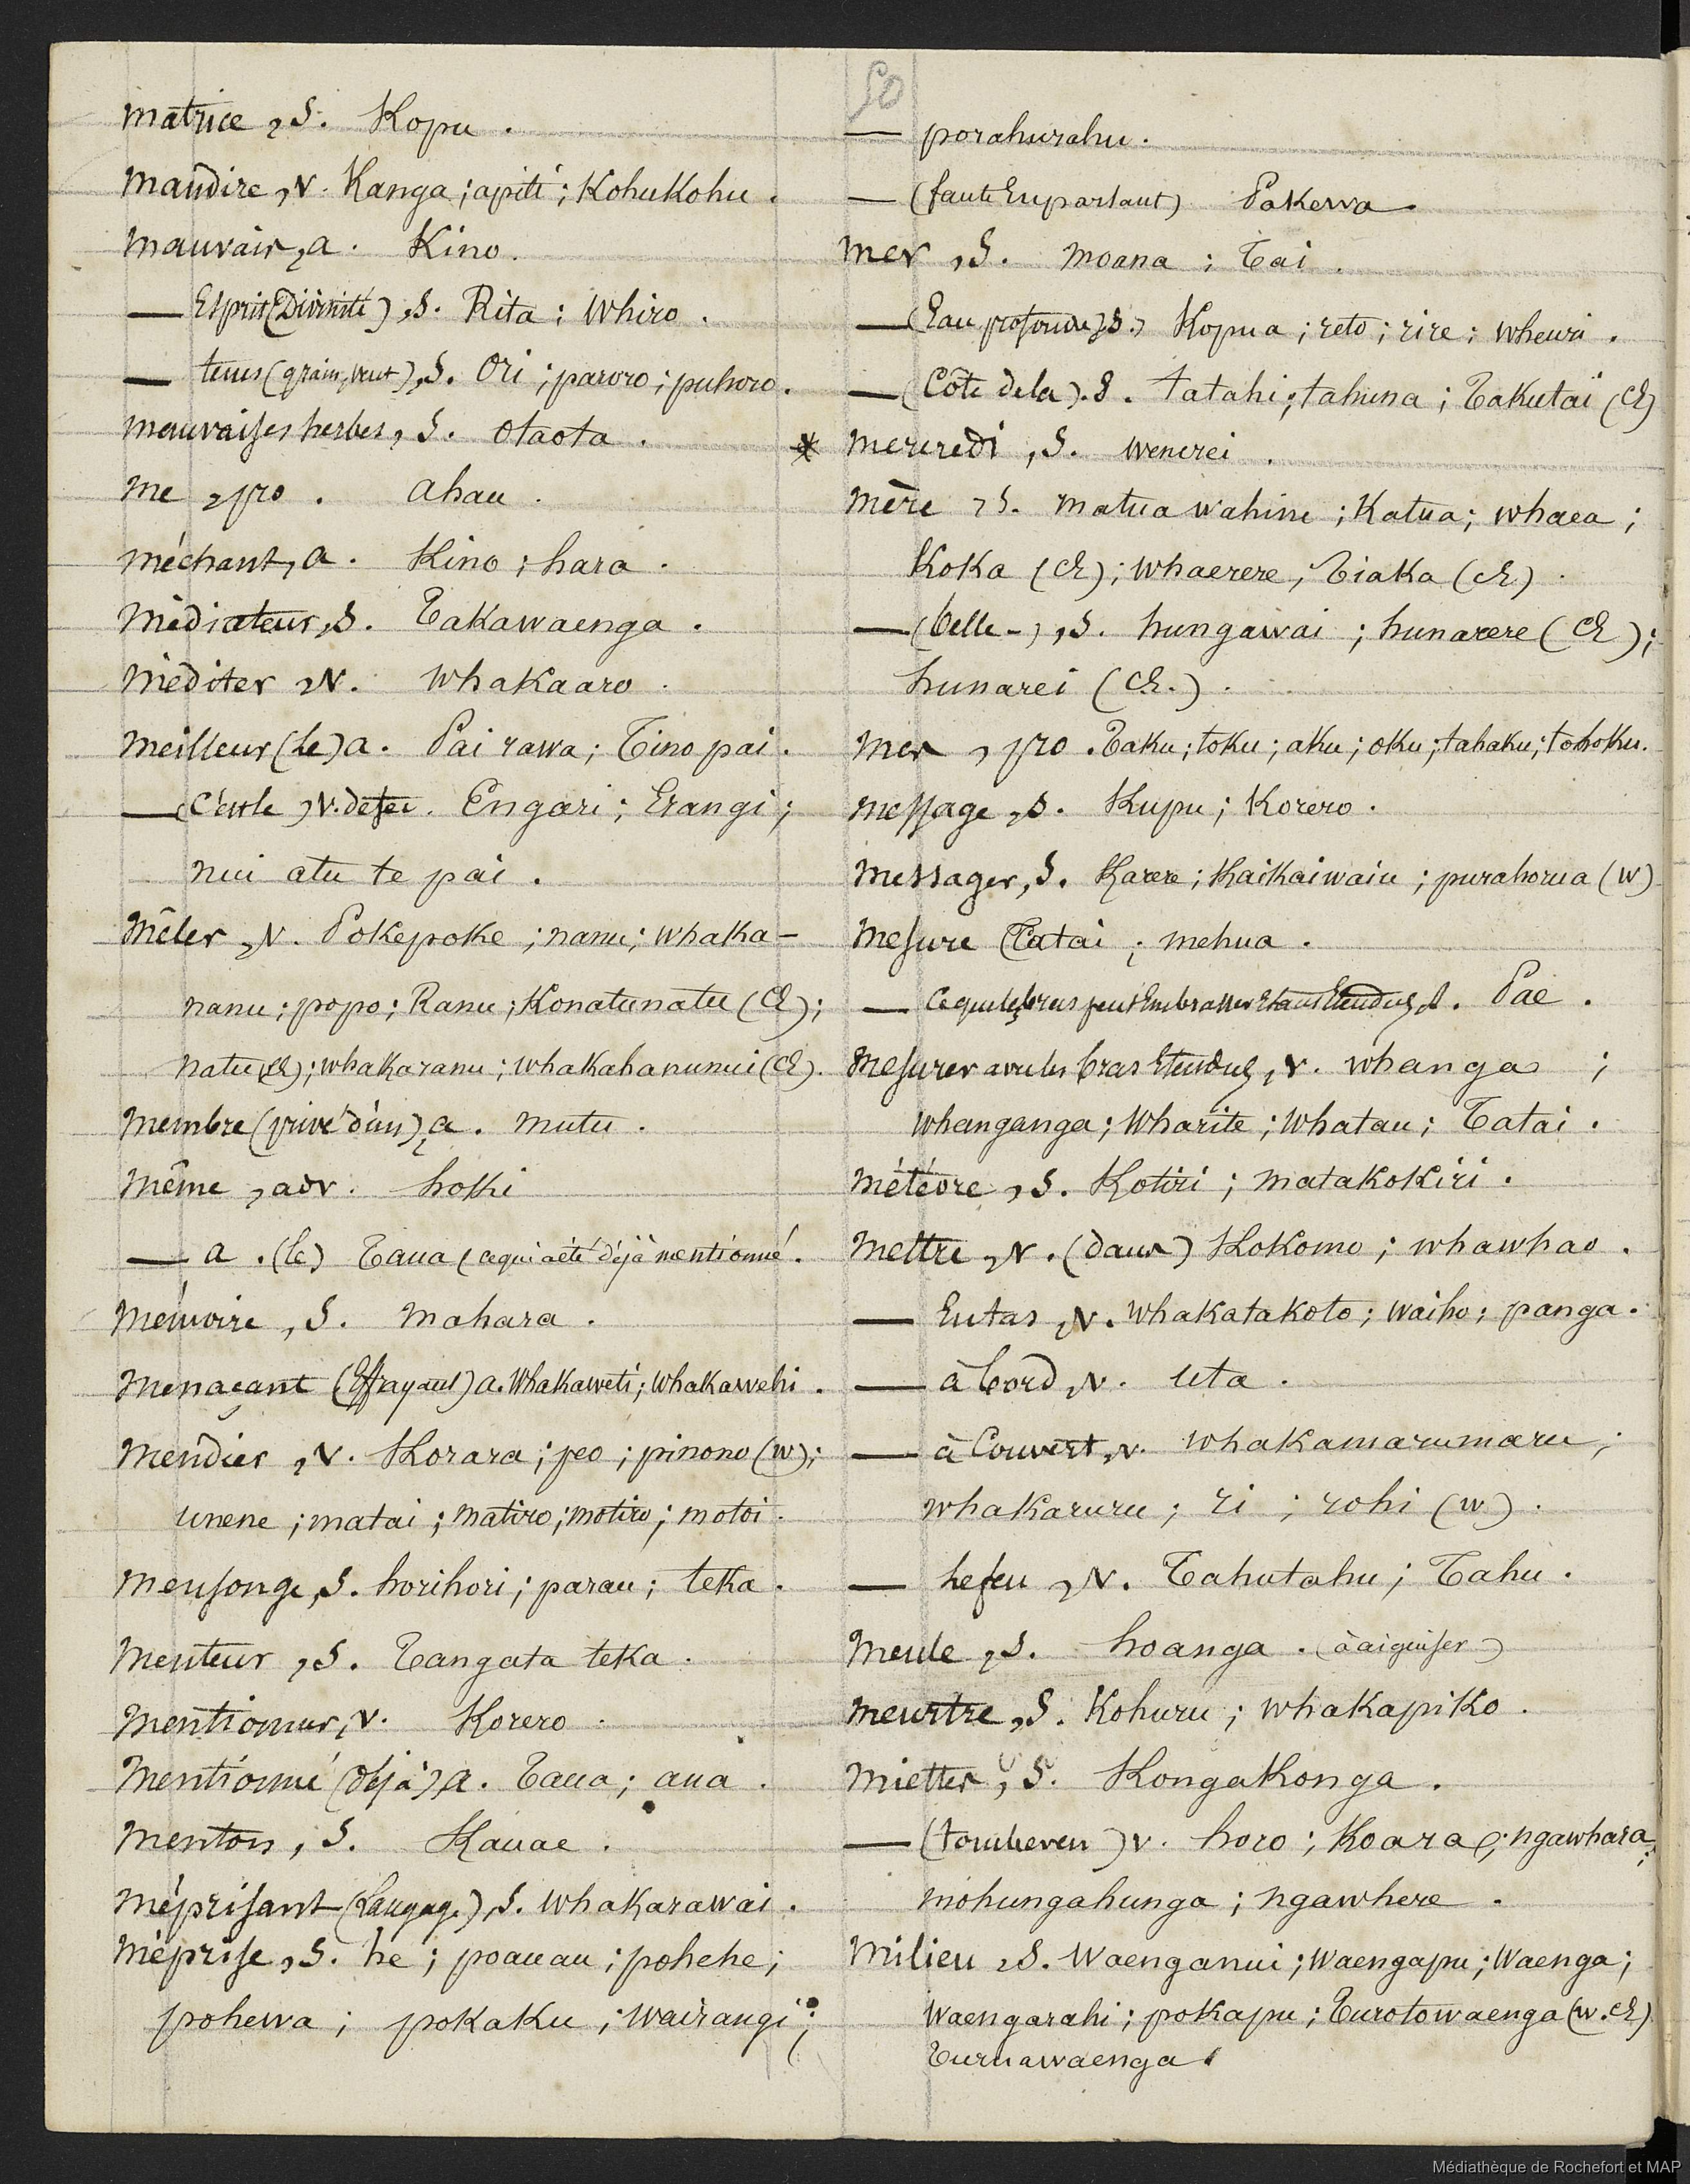 50
Matrice, S. Kopu.
Maudire, V. Kanga; apiti; Kohukohu.
Mauvais, a. Kino.
— Esprit (Divinité), S. Rita; Whiro.
— tems (grain, vent), S. Ori; paroro; puhoro.
Mauvaises herbes, S. Otaota.
Me, pro. Ahau.
Méchant, a. Kino; hara.
Médiateur, S. Takawaenga.
Méditer, V. Whakaaro.
Meilleur (le) a. Pai rawa; Tino pai.
— (C'est le) V. défec. Engari; Erangi;
nui atu te pai.
Mêler, V. Pokepoke; nanu; whaka-
nanu; popo; Ranu; Konatunatu (E);
natu (E); whakaranu; whakahanumui (E).
Membre (privé d'un), a. Mutu.
Même, adv. hoki
— a. (le) Taua (ce qui a été déjà mentionné.
Mémoire, S. Mahara.
Menaçant (Effrayant) a. Whakaweti; whakawehi.
Mendier, V. Korara; peo; pinono (W);
unene; matai; matiro; motiro; motoi.
Mensonge, S. horihori; parau; teka.
Menteur, S. Tangata teka.
Mentionner, V. Korero.
Mentionné (déjà), a. Taua; aua.
Menton, S. Kauae.
Méprisant (Langage), S. Whakarawai.
Méprise, S. he; poauau; pohehe;
pohewa; pokaku; wairangi;
— porahurahu.
— (faute En parlant) Pakewa.
Mer, S. Moana; Tai.
— (Eau profonde) S. Kopua; reto; rire; wheuri.
— (Côte de la). S. Tatahi; tahuna; Takutai (E)
* Mercredi, S. Wenerei.
Mère, S. Matua wahine; Katua; whaea;
Koka (E); whaerere; Tiaka (E).
— (belle-), S. hungawai; hunarere (E);
hunarei (E.).
Mes, pro. Taku; toku; aku; oku; tahaku; tohoku.
Message, S. Kupu; Korero.
Messager, S. Karere; Kaikaiwaiu; purahorua (W)
Mesure Tatai; mehua.
— Ce que les bras peut Embrasser Etans Etendus, S. Pae.
Mesurer avec les bras Etendus, V. whanga;
whanganga; wharite; whatau; Tatai.
Météore, S. Kotiri; matakokiri.
Mettre, V. (dans) Kokomo; whawhao.
— En tas, V. Whakatakoto; waiho; panga.
— à bord, V. Uta.
— à Couvert, V. Whakamarumaru;
whakaruru; ri; rohi (W).
— le feu, V. Tahutahu; Tahu.
Meule, S. hoanga. (à aiguiser)
Meurtre, S. Kohuru; whakapiko.
Miettes, S. Kongakonga.
— (tomber en) V. horo; Koara; ngawhara;
mohungahunga; ngawhere.
Milieu, S. Waenganui; Waengapu; Waenga;
Waengarahi; pokapu; Turotowaenga (W. E)
Turuawaenga.
Médiathèque de Rochefort et MAP